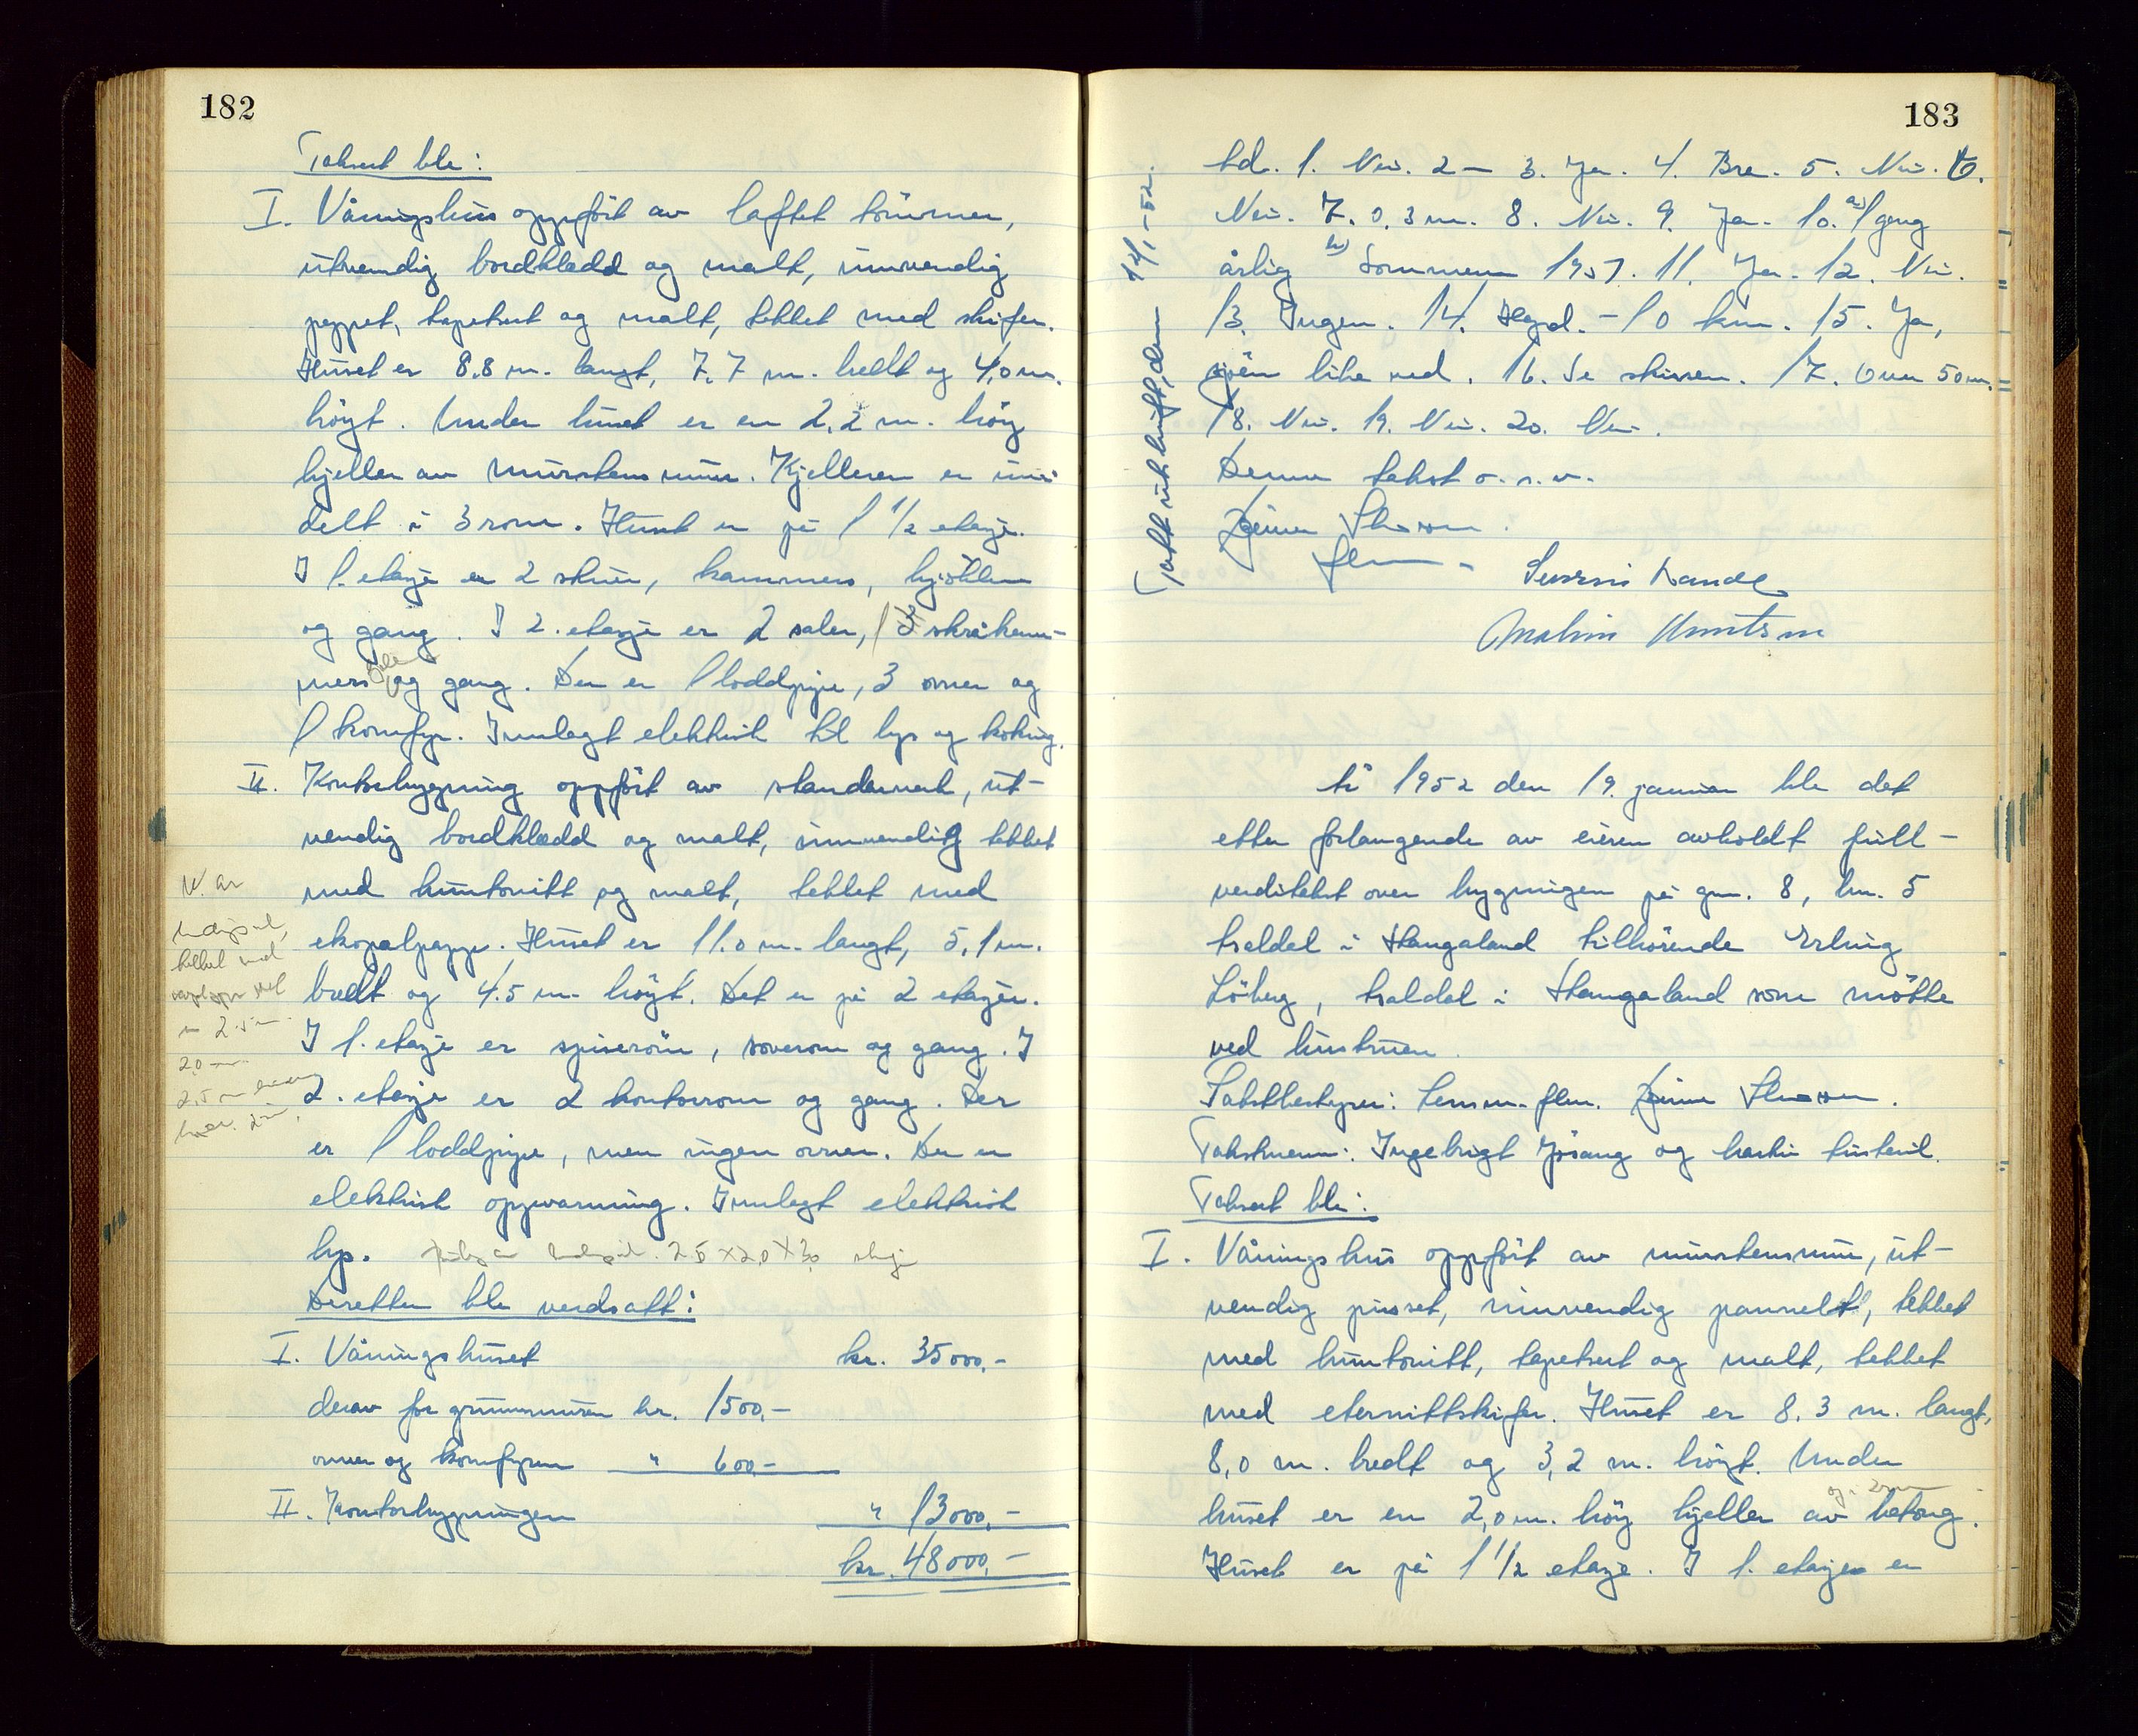 182
Taksert ble:
I. Våningshus oppført av laftet tømmer,
utvendig bordkledd og malt, innvendig
pappet, tapetsert og malt, tekket med skifer.
Huset er 8.8 m. langt, 7.7 m. bredt og 4,0 m.
høyt. Under huset er en 2,2 m. høy
kjeller av murstensmur. Kjelleren er inn-
delt i 3 rom. Huset er på 1 1/2 etasje.
I 1. etasje er 2 stuer, kammers, kjøkken
og gang. I 2. etasje er 2 saler, 3 skråkam-
mers og gang. Der er 1 loddpipe, 3 ovner og
1 komfyr. Innlagt elektrisk til lys og koking.
II. Kontorbygning oppført av standerverk, ut-
vendig bordkledd og malt, innvendig tekket
med huntonitt og malt, tekket med
ekopalpapp. Huset er 11.0 m. langt, 5,1 m.
bredt og 4.5 m. høyt. Det er på 2 etasjer.
I 1. etasje er spiserom, soverom og gang. I
2. etasje er 2 kontorrom og gang. Der
er 1 loddpipe, men ingen ovner. Der er
elektrisk oppvarming. Innlagt elektrisk
lys. 2.5 x 2.0 x 3,0
Deretter ble verdsatt:
I. Våningshuset kr. 35000.-
derav for grunnmuren kr. 1500.-
ovner og komfyren " 600.-
II. Kontorbygningen " 13000.-
kr. 48000.-
183
td. 1. Nei. 2 - 3. Ja. 4. Bra. 5. Nei. 6.
Nei. 7. 0,3 m. 8. Nei. 9. Ja. 10. a) 1 gang
årlig b) Sommeren 1951. 11. Ja. 12. Nei.
13. Ingen. 14. Hgsd. - 10 km. 15. Ja,
sjøen like ved. 16. Se skissen. 17. Over 50 m.
18. Nei. 19. Nei. 20. Nei.
Denne takst o. s. v.
flm.
Malvin Knutsen
Tatt utskrift, den 14/1-52.
År 1952 den 19. januar ble det
etter forlangende av eieren avholdt full-
verditakst over bygningen på gnr. 8, bnr. 5
i Stangaland tilhørende Erling
Löberg, i Stangaland som møtte
ved hustruen.
Takstbestyrer: Lensm. flm.
Takstmenn: Ingebrigt og
Taksert ble:
I. Våningshus oppført av murstensmur, ut-
vendig pusset, innvendig pannelt, tekket
med huntonitt, tapetsert og malt, tekket
med eternittskifer. Huset er 8.3 m. langt,
8,0 m. bredt og 3,2 m. høyt. Under
huset er en 2,0 m. høy kjeller av betong.
Huset er på 1 1/2 etasje. I 1. etasje er